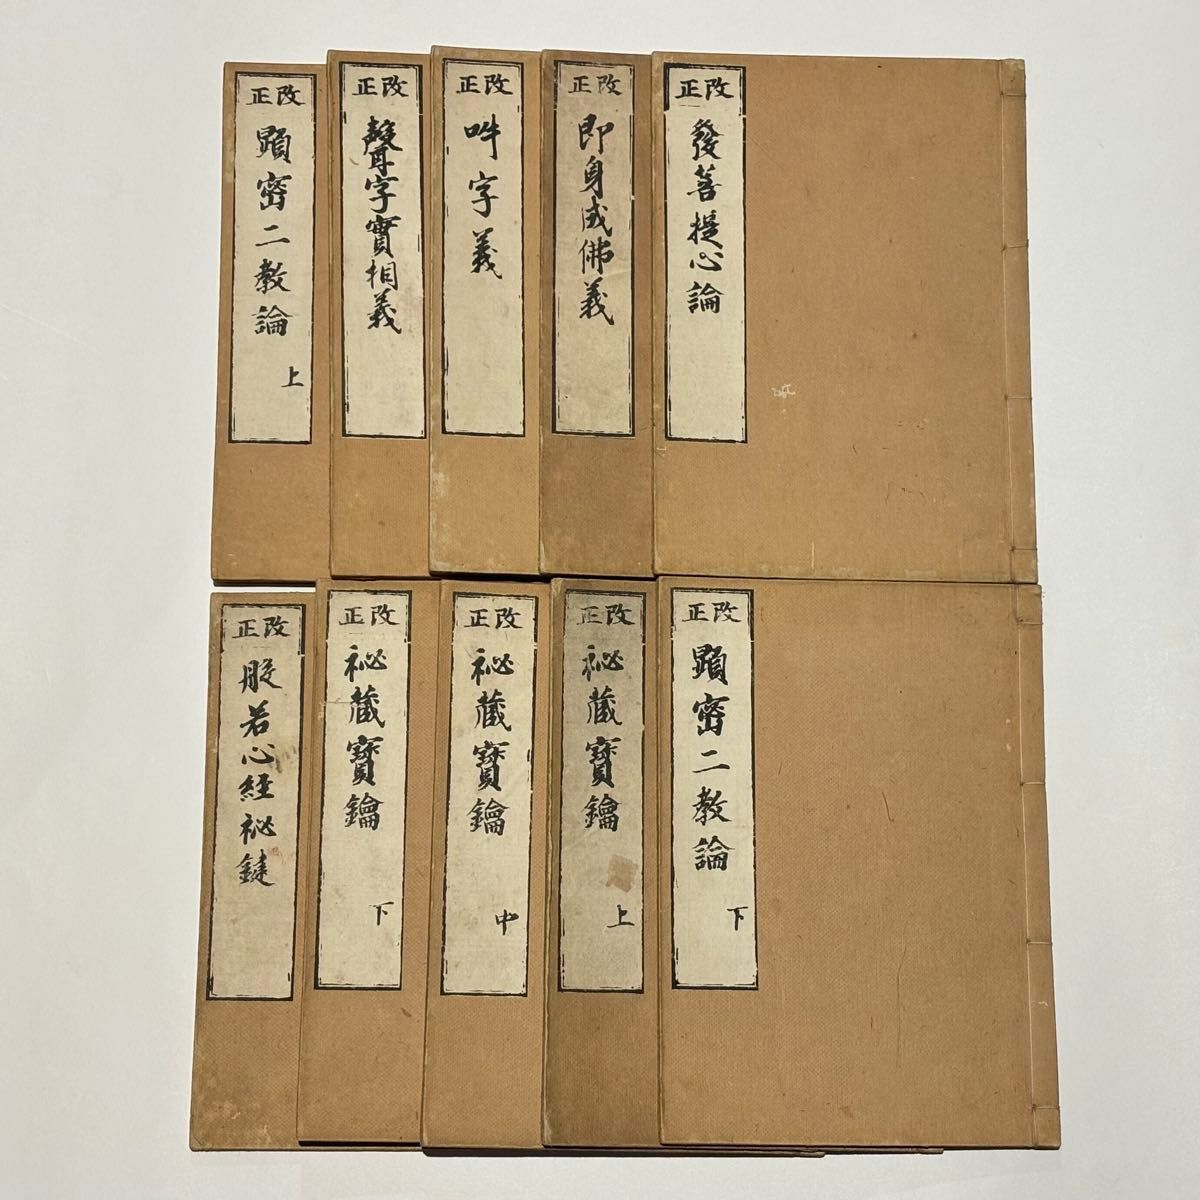 改正
發菩提心論
改正
即身成佛義
改正
吽字義
改正
聲字實相義
改正
顕密二教論
上
改正
顕密二教論
下
改正
祕藏寶鑰
上
改正
祕藏寶鑰
中
改正
祕藏寶鑰
下
改正
般若心經祕鍵